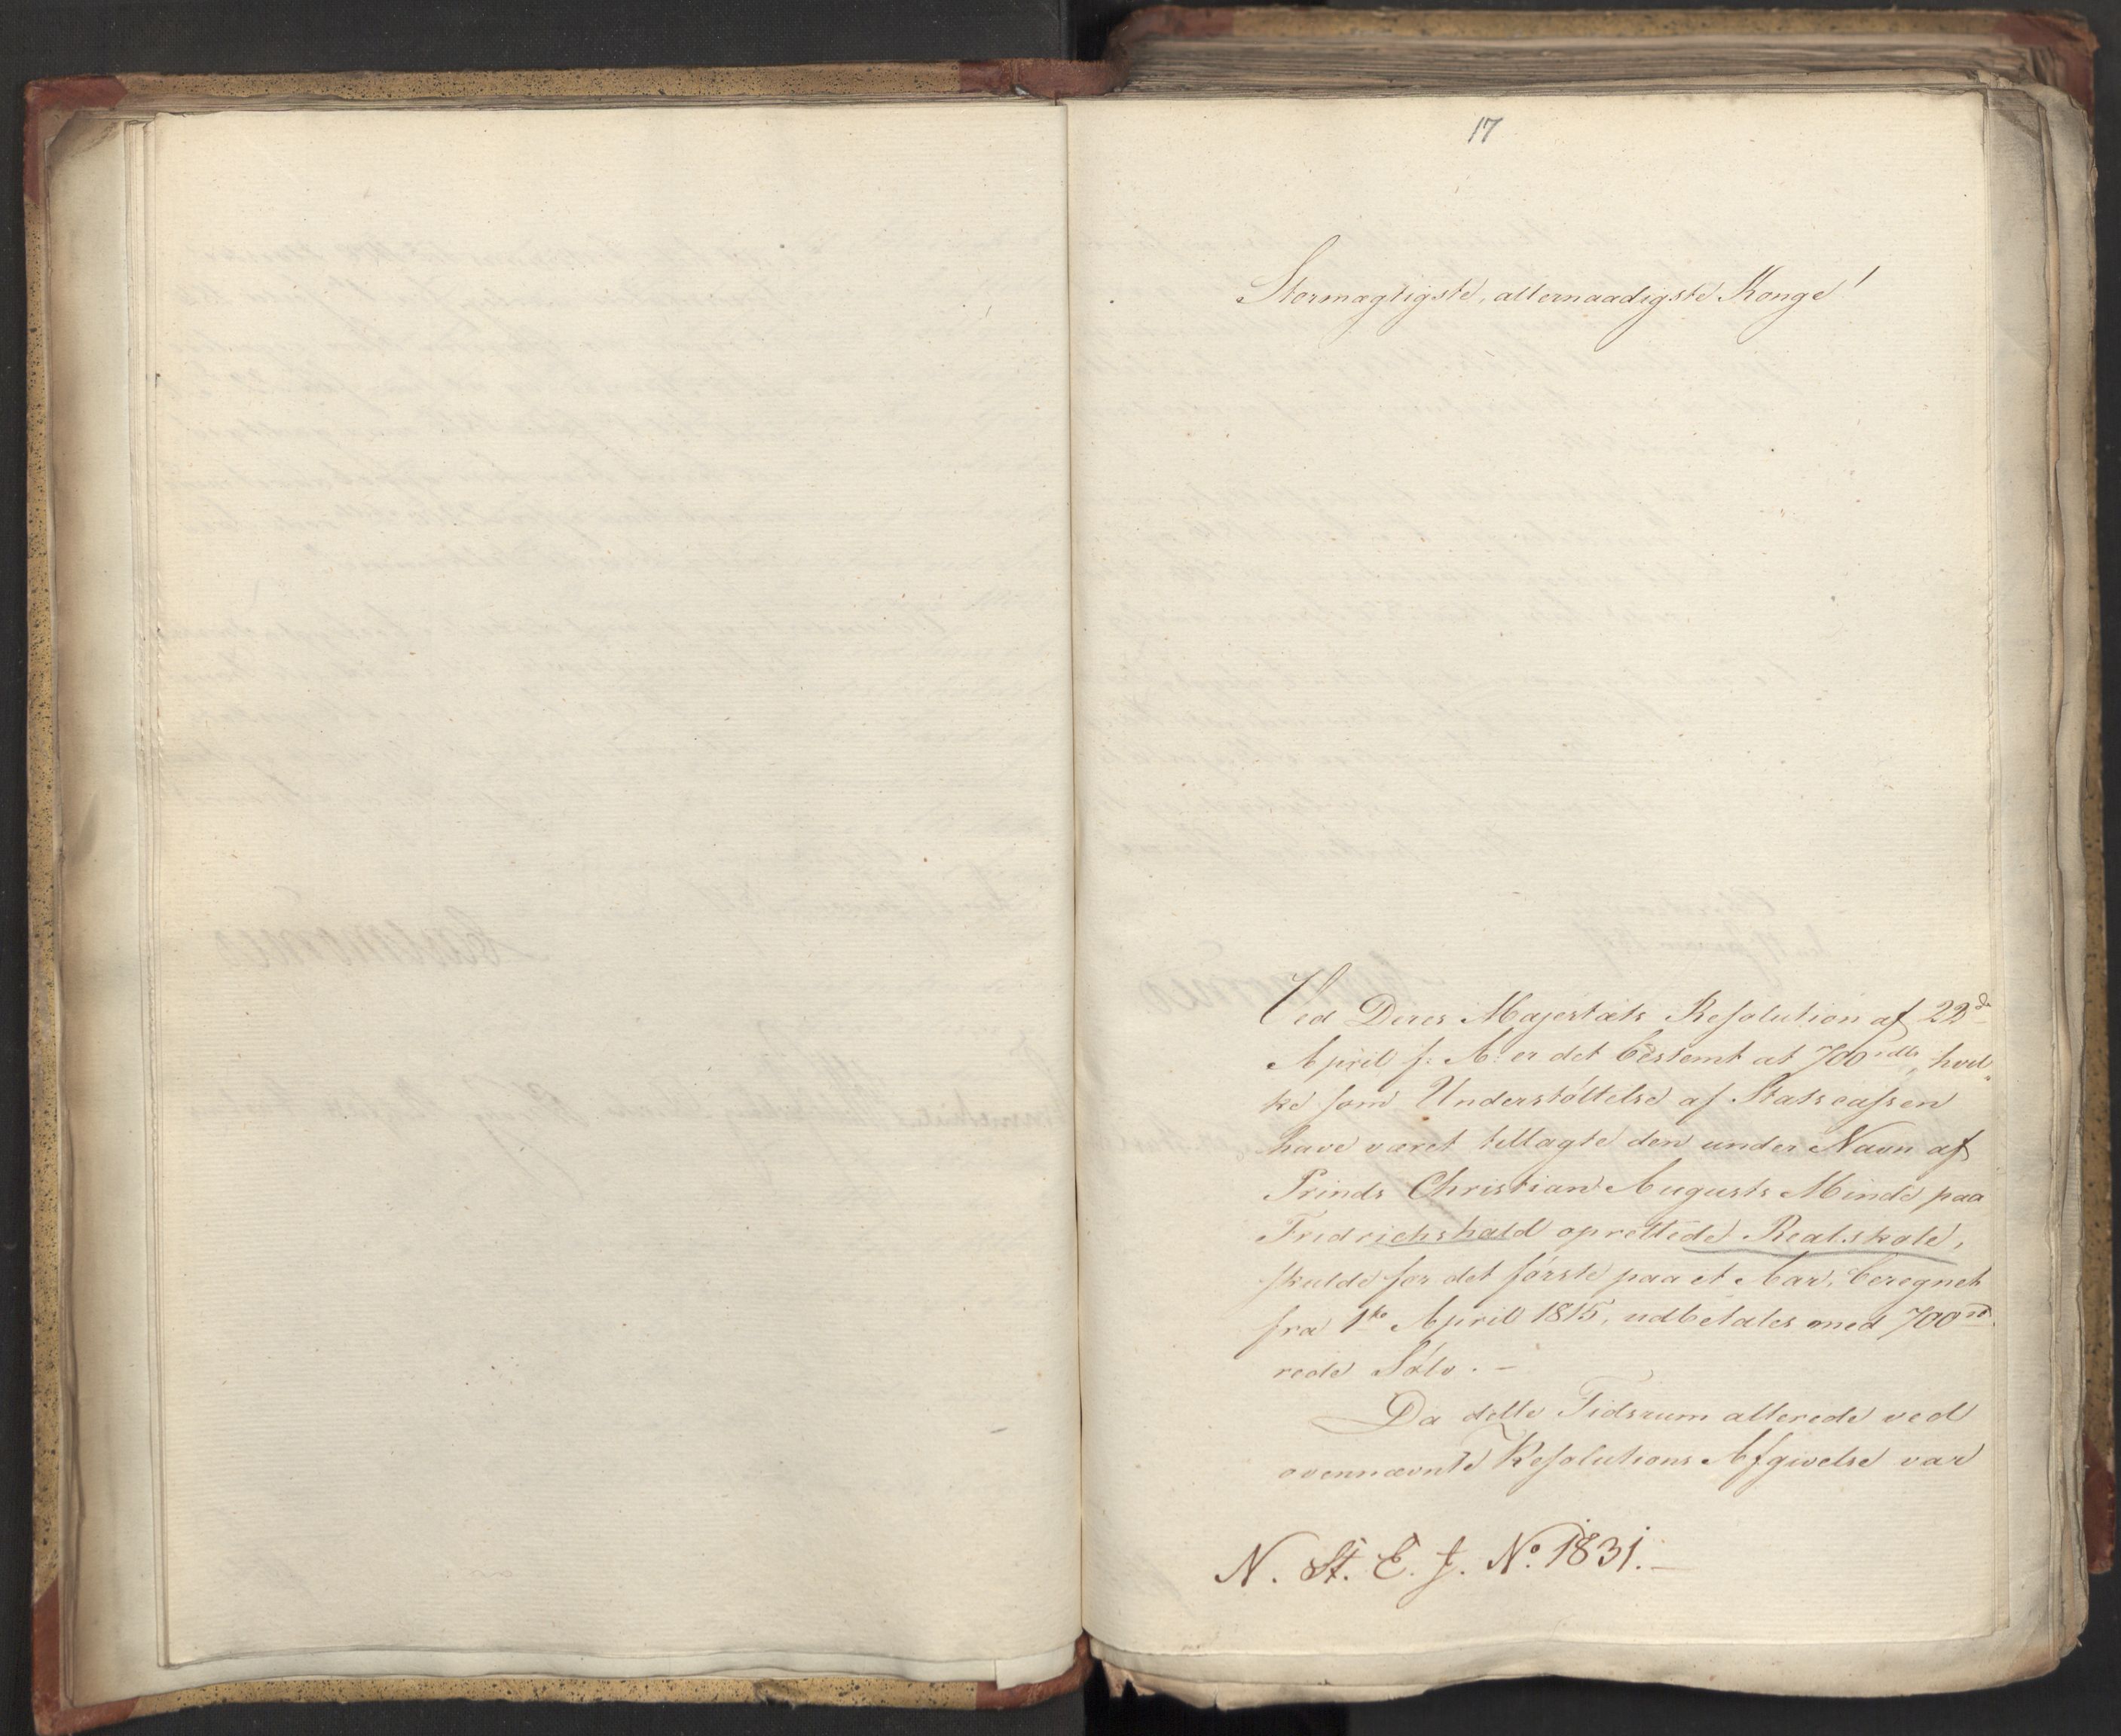 17
Stormægtigste, allernaadigste Konge!
Ved Deres Majestæts Resolution af 22de
April f: A: er det bestemt at 700 rdlr, hvil„
ke som Understøttelse af Statscassen
have været tillagte den under Navn af
Prinds Christian Augusts Minde paa
Fridrichshald oprettede Realskole,
skulde for det første paa et Aar, beregnet
fra 1te April 1815, udbetales med 700 rd.
rede Sølv. –
Da dette Tidsrum allerede ved
ovennævnte Resolutions Afgivelse var
N. St. E. J. No. 1831. –